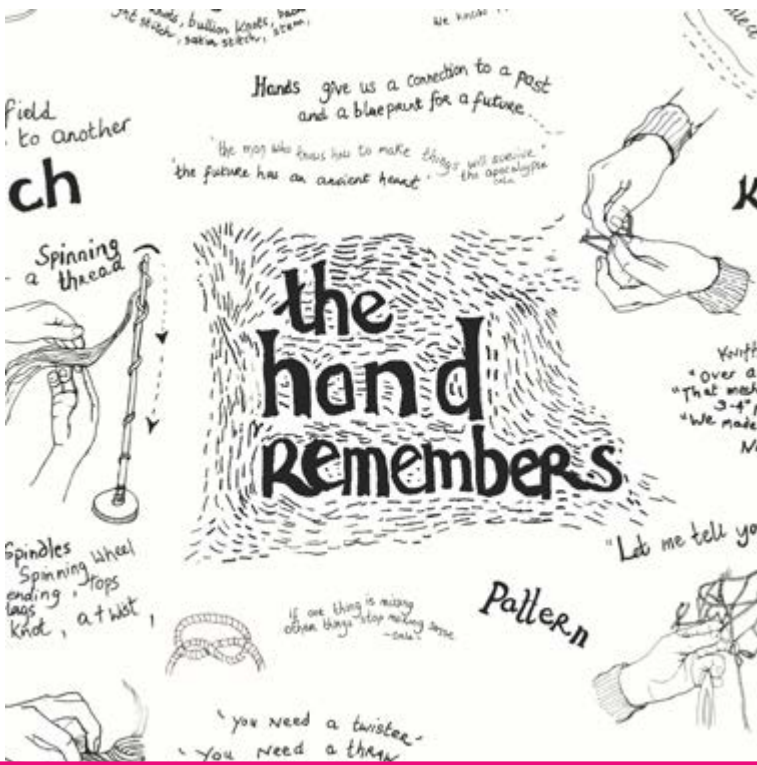 knots, bullion knots, back
ght stitch, satin stitch, stem,
We know
Hands give us a connection to a past
and a blueprint for a future
field
to another
ch
"the man who knows how to make things will survive
the apocalypse"
"the future has an ancient heart"
K
Spinning
a thread
the
hand
Remembers
Knitt
"Over a
"That mesh
3-4"
"We made
"Let me tell yo
Spindles
Spinning Wheel
ending, tops
lags
knot, a twist,
if one thing is missing
other things stop making sense
Pattern
"you need a twister"
"you need a thraw